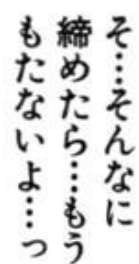 そ…そんなに
締めたら…もう
もたないよ…っ